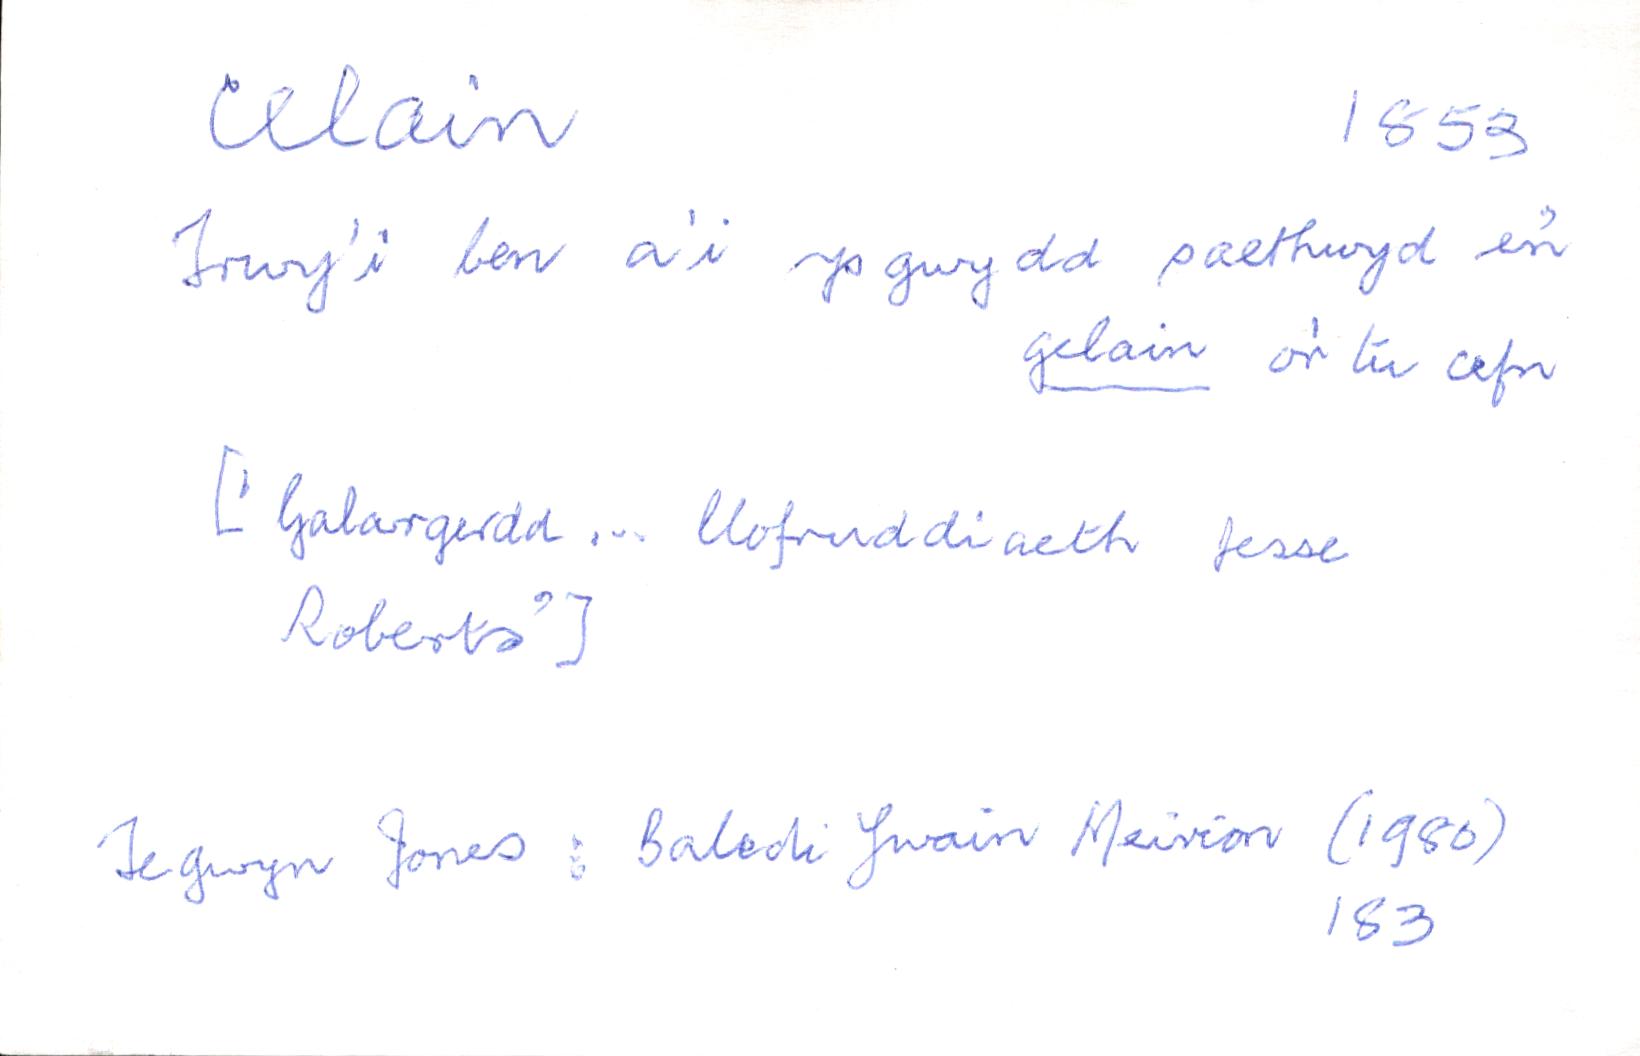 Celain 1853
Trwy'i ben a'i ysgwydd saethwyd e'n
gelain o'r tu cefn
['Galargerdd ... llofruddiaeth Jesse
Roberts']
Tegwyn Jones : Baledi Ywain Meirion (1980)
183